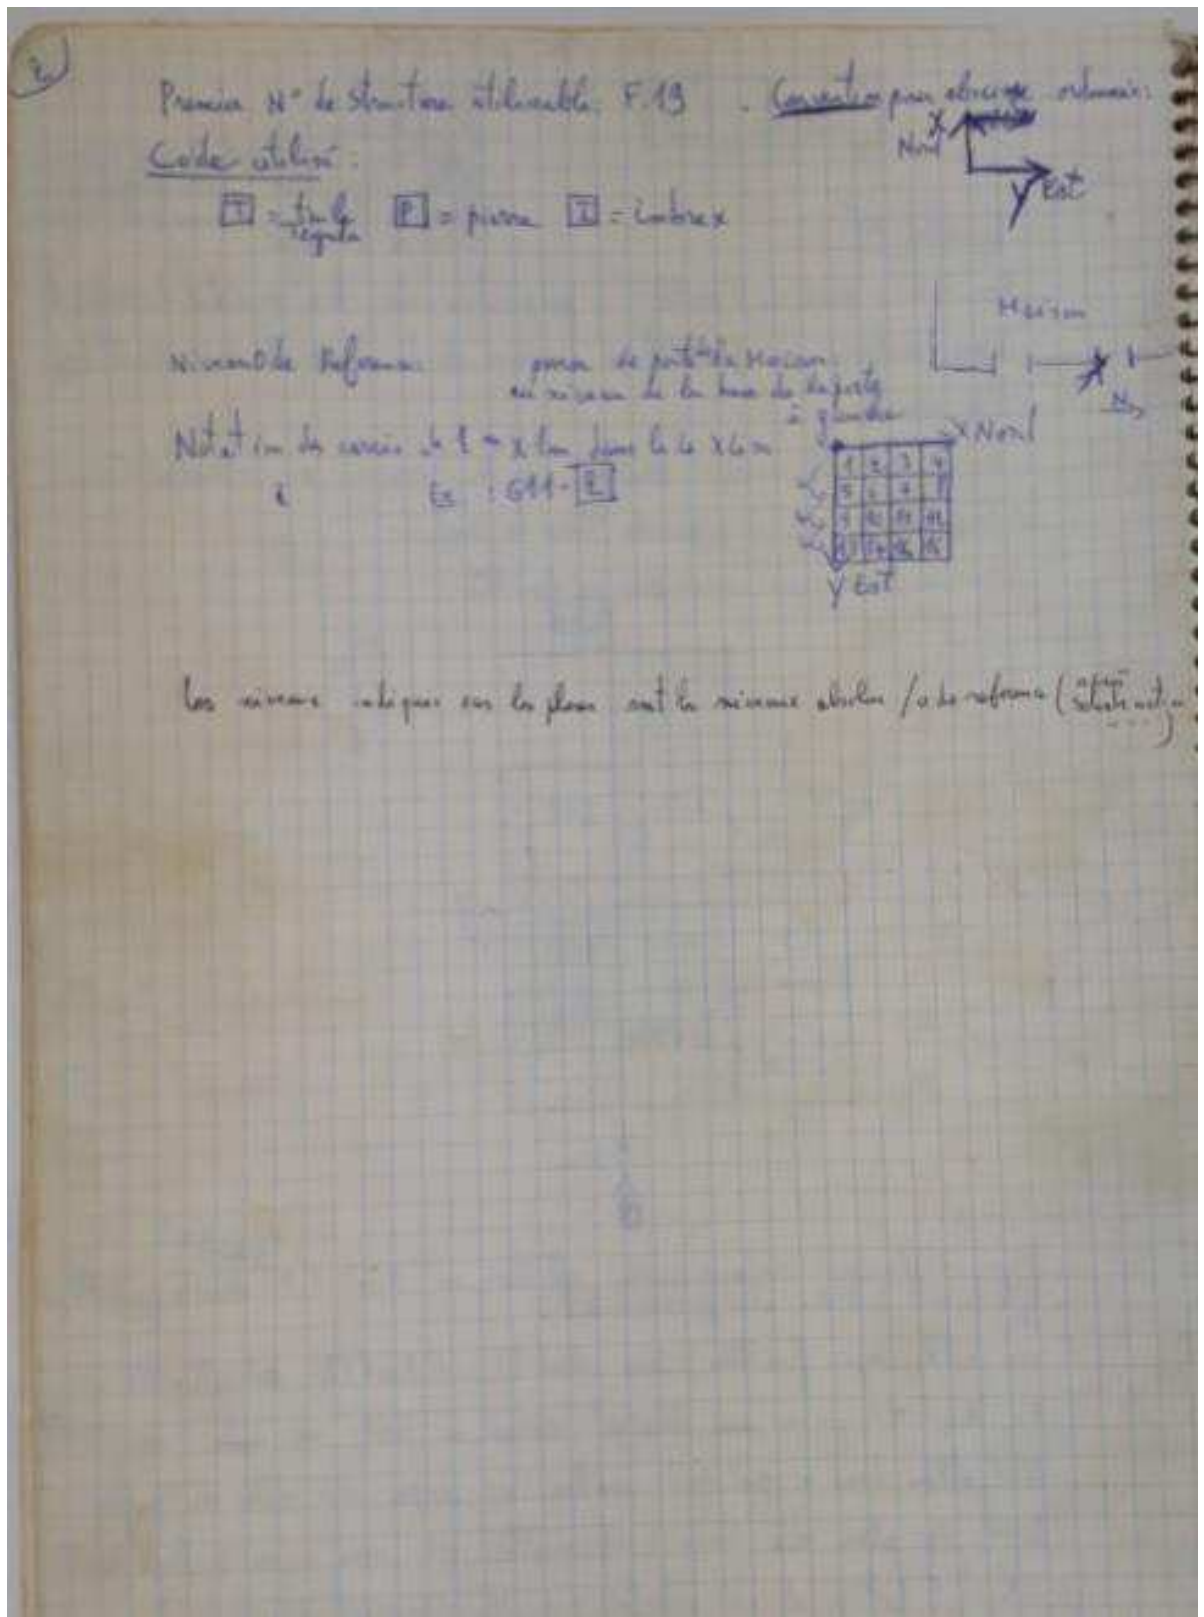 2
Premier N° de Structure utilisable. F.19 . Convention pour abscisse ordonnée:
X
Nord
Y Est
Code utilisé.
T = tuile
tegula
P = pierre I = imbrex
Maison
Niveau de Reference: de porte de la Maison
au niveau de la base de la porte
à gauche
N
Notation des carrés de 1 m x 1m dans le 4 x 4 m
Ex : G11-2
X Nord
1 2 3 4
5 6 7 8
9 10 11 12
13 14 15 16
Y Est
Les niveaux indiqués sur les plans sont les niveaux absolus /o de reference (après